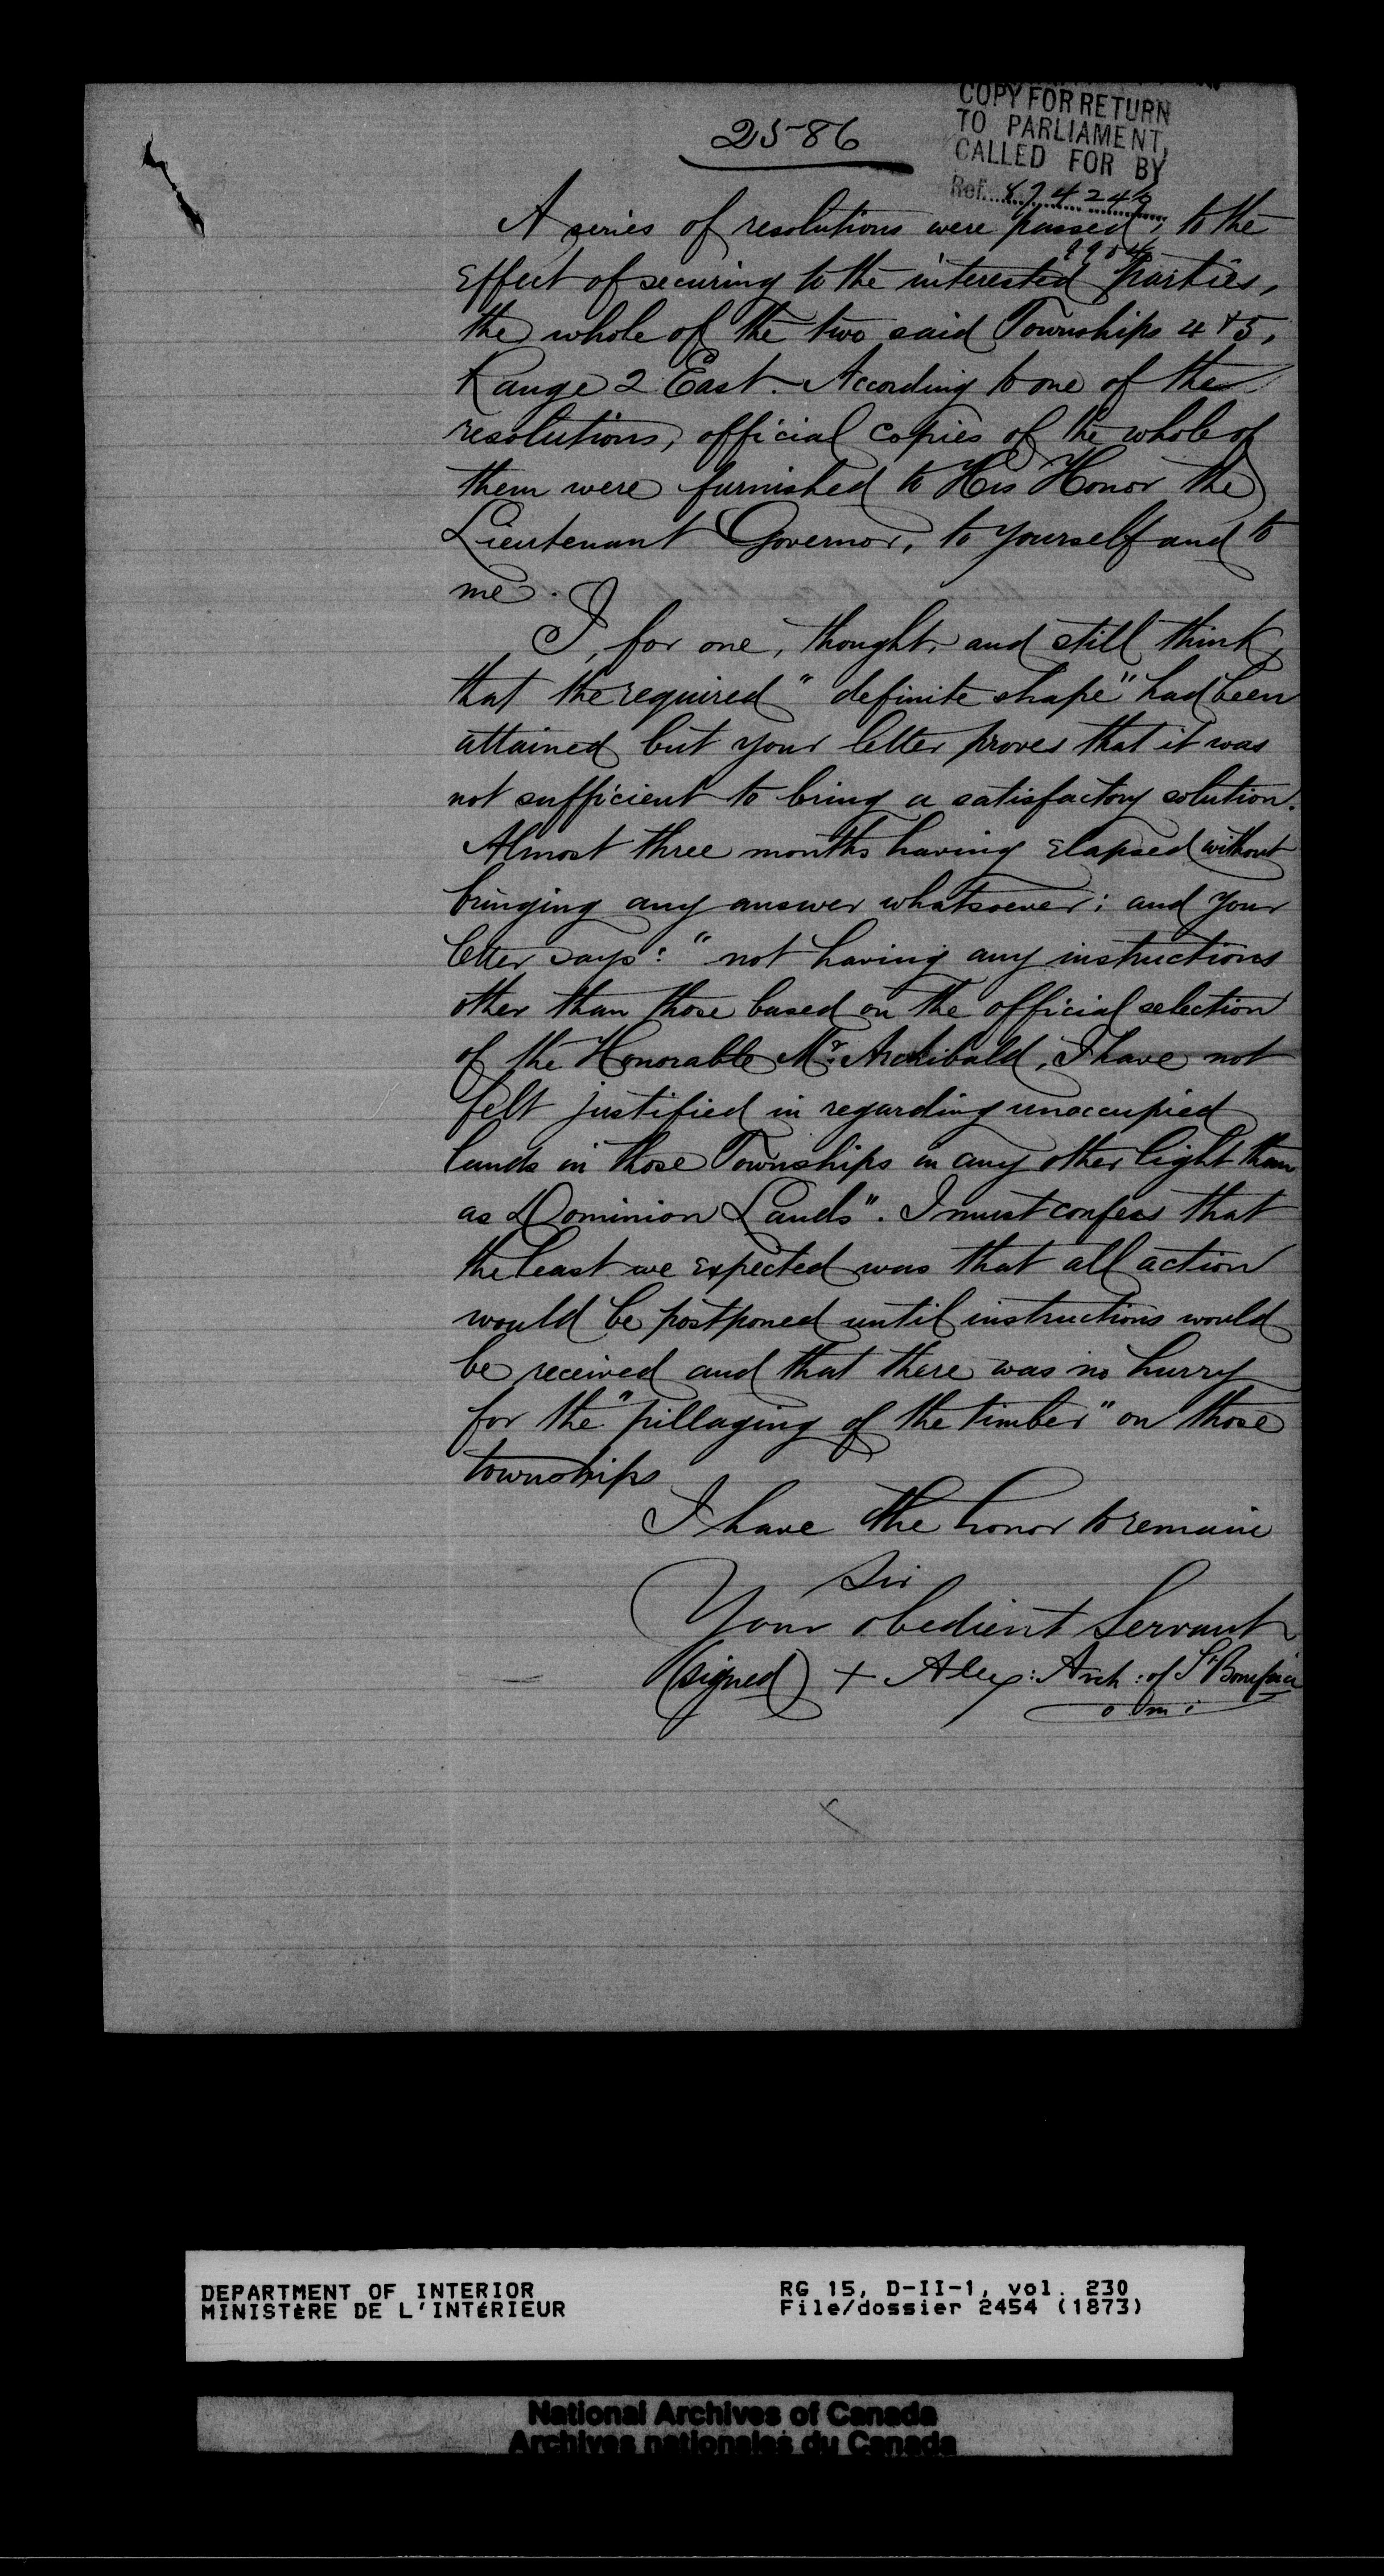 2586
COPY FOR RETURN
TO PARLIAMENT,
CALLED FOR BY
Ref.
A series of resolutions were passed, to the
effect of securing to the interested parties,
the whole of the two said Townships 4 & 5,
Range 2 East. According to one of the
resolutions, official copies of the whole of
them were furnished to His Honor the
Lieutenant Governor, to yourself and to
me.
I, for one, thought, and still think,
that the required "definite shape" had been
attained but your letter proves that it was
not sufficient to bring a satisfactory solution.
Almost three months having elapsed without
bringing any answer whatsoever; and your
letter says: "not having any instructions
other than those based on the official selection
of the Honorable Mr. Archibald, I have not
felt justified in regarding unoccupied
lands in those Townships in any other light than
as Dominion Lands". I must confess that
the least we expected was that all action
would be postponed until instructions would
be received and that there was no hurry
for the "pillaging of the timber" on those
townships
I have the honor to remain
Sir
Your obedient Servant
(signed) + Alex: Arch: of St Boniface
o m i
DEPARTMENT OF INTERIOR
MINISTÈRE DE L'INTÉRIEUR
RG 15, D-II-1, vol. 230
File/dossier 2454 (1873)
National Archives of Canada
Archives nationales du Canada